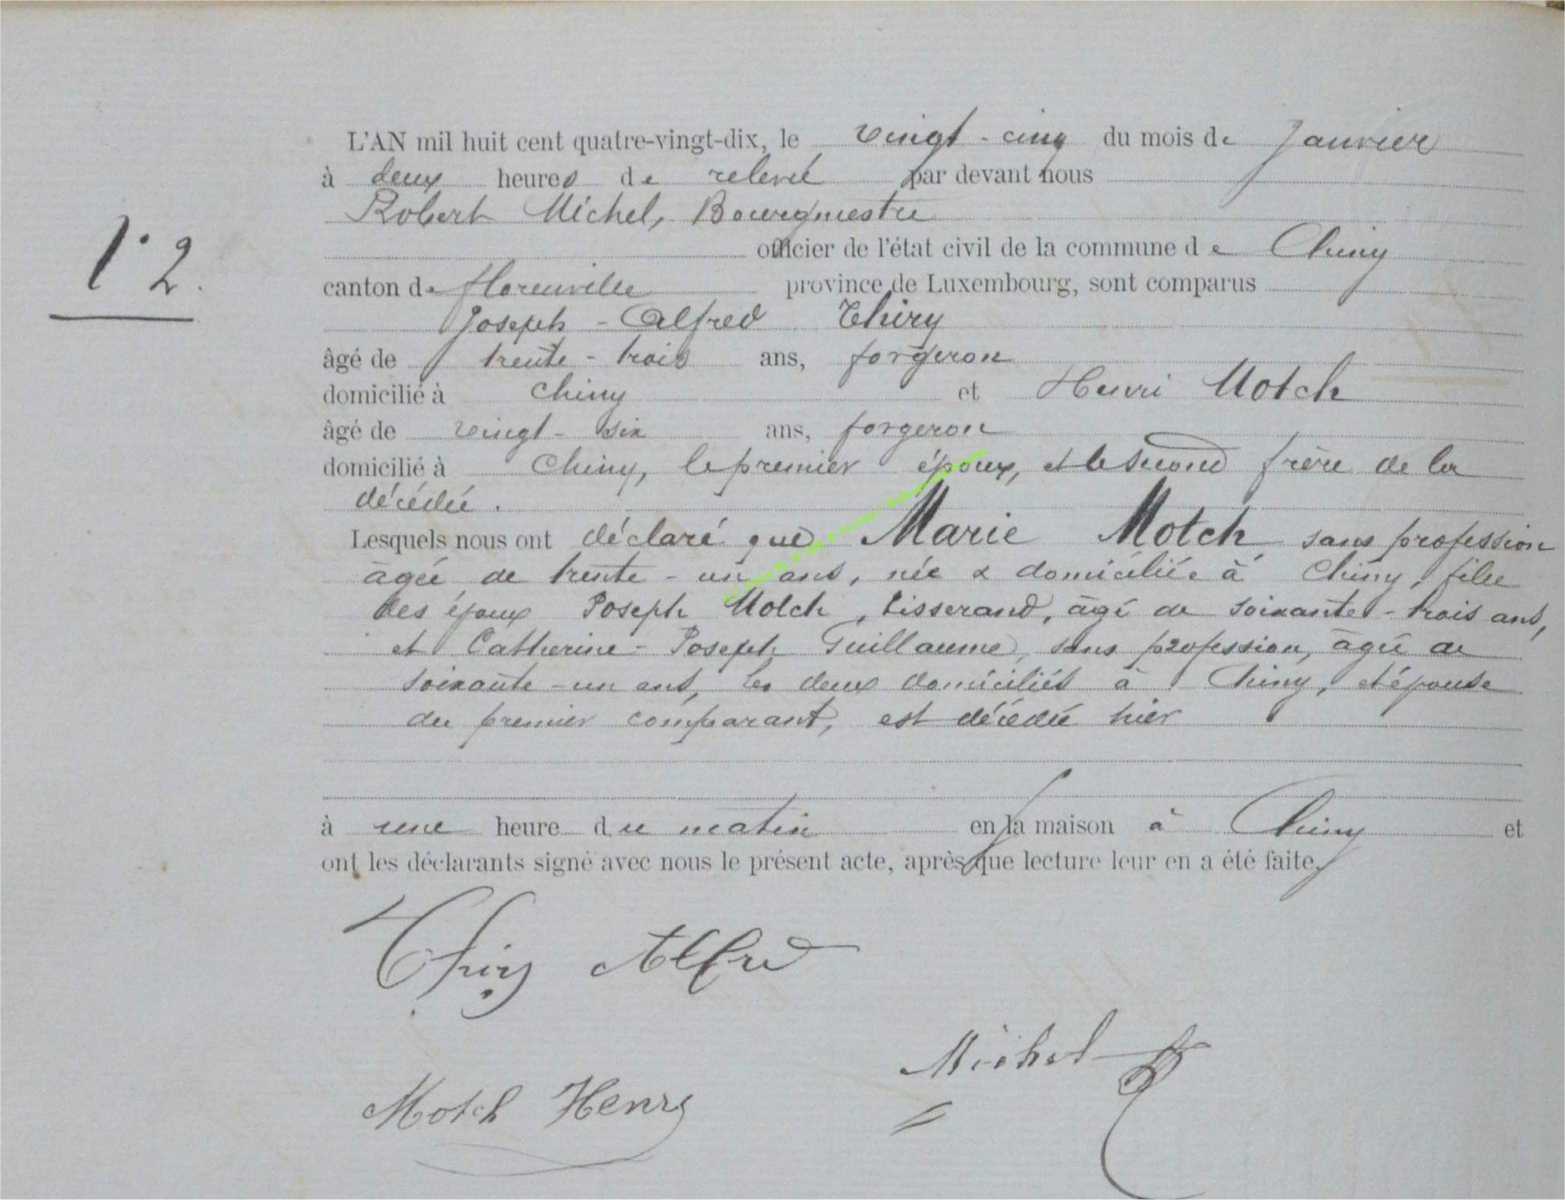 L'AN mil huit cent quatre-vingt-dix, le vingt-cinq du mois de Janvier
à deux heures de relevée par devant nous
Robert Michel, Bourgmestre
officier de l'état civil de la commune de Chiny
N° 2.
canton de Florenville province de Luxembourg, sont comparus
Joseph-Alfred Thiry
âgé de trente-trois ans, forgeron
domicilié à Chiny et Henri Motch
âgé de vingt-six ans, forgeron
domicilié à Chiny, le premier époux, et le second frère de la
décédée.
Lesquels nous ont déclaré que Marie Motch sans profession
âgée de trente-un ans, née & domiciliée à Chiny, fille
des époux Joseph Motch, tisserand, âgé de soixante-trois ans,
et Catherine-Joseph Guillaume, sans profession, âgée de
soixante-un ans, les deux domiciliés à Chiny, et épouse
du premier comparant, est décédée hier
à une heure du matin en la maison à Chiny et
ont les déclarants signé avec nous le présent acte, après que lecture leur en a été faite.
Thiry Alfred
Michel
Motch Henry